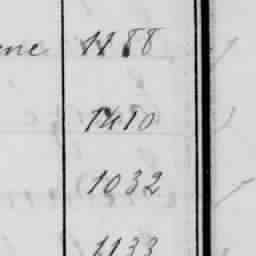 me 1188
1410
1032
1133